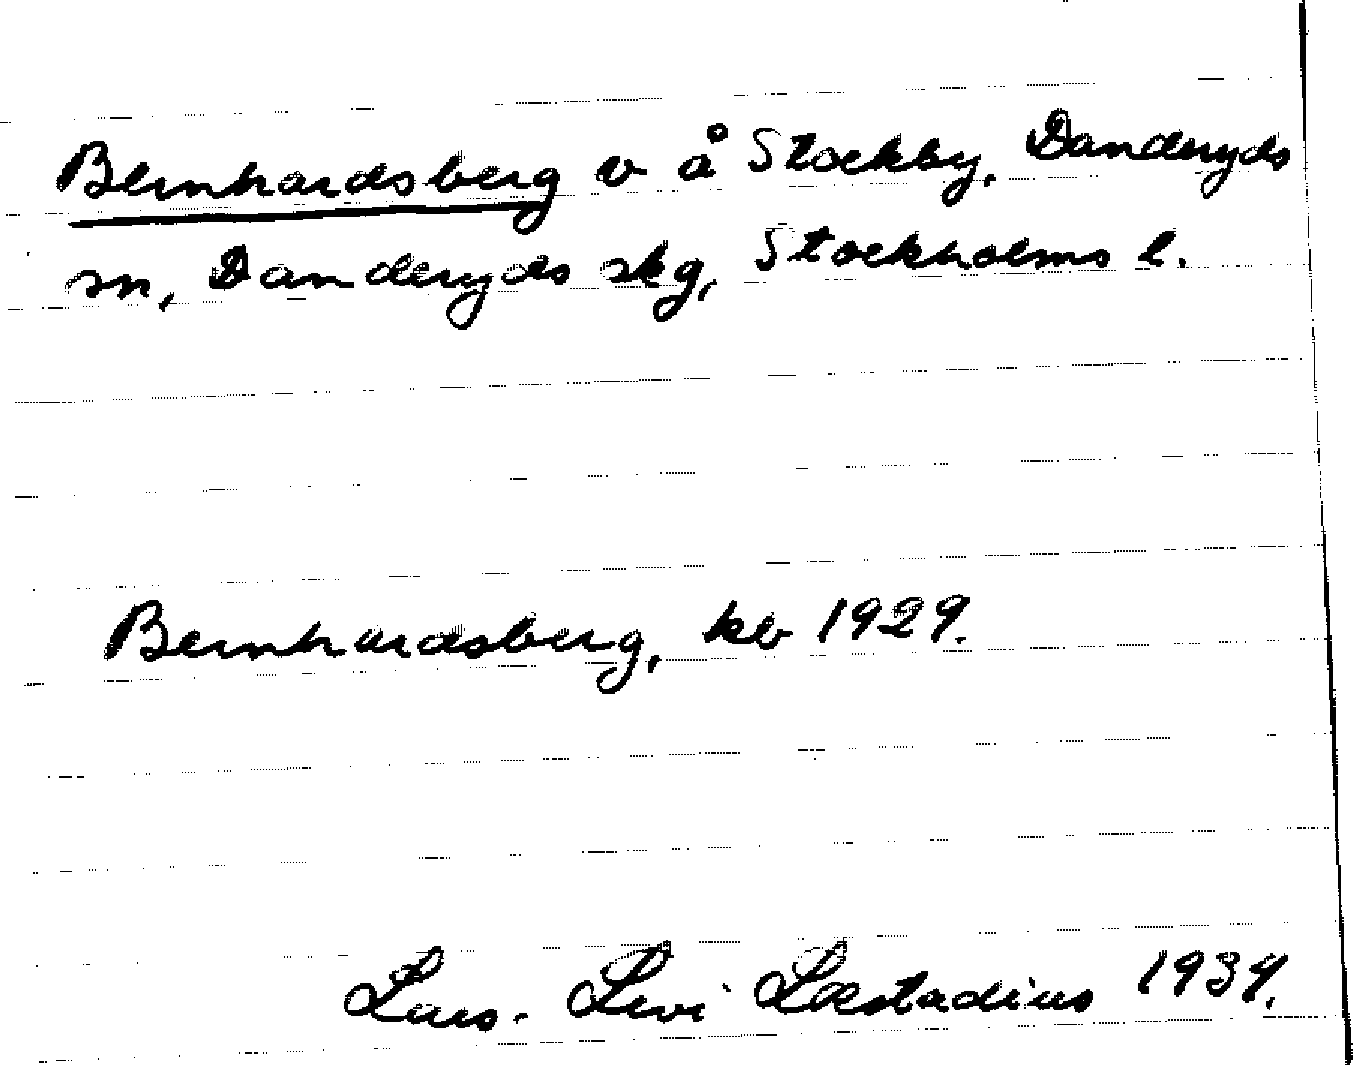 Bernhardsberg v å Stockby, Danderyds
sn, Danderyds skg, Stockholms l.
Bernhardsberg, kb 1929.
Lars-Levi Læstadius 1934.